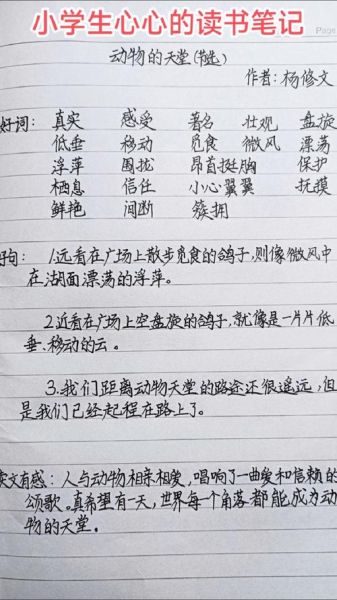 小学生心心的读书笔记
Page
动物的天堂(节选)
作者:杨修文
好词: 真实 感受 著名 壮观 盘旋
低垂 移动 觅食 微风 漂荡
浮萍 围拢 昂首挺胸 保护
栖息 信任 小心翼翼 抚摸
鲜艳 间断 簇拥
好句: 1.远看在广场上散步觅食的鸽子,则像微风中
在湖面漂荡的浮萍。
2.近看在广场上空盘旋的鸽子,就像是一片片低
垂、移动的云。
3.我们距离动物天堂的路途还很遥远,但
是我们已经起程在路上了。
读文有感:人与动物相亲相爱,唱响了一曲爱和信赖的
颂歌。真希望有一天,世界每一个角落都能成为动
物的天堂。